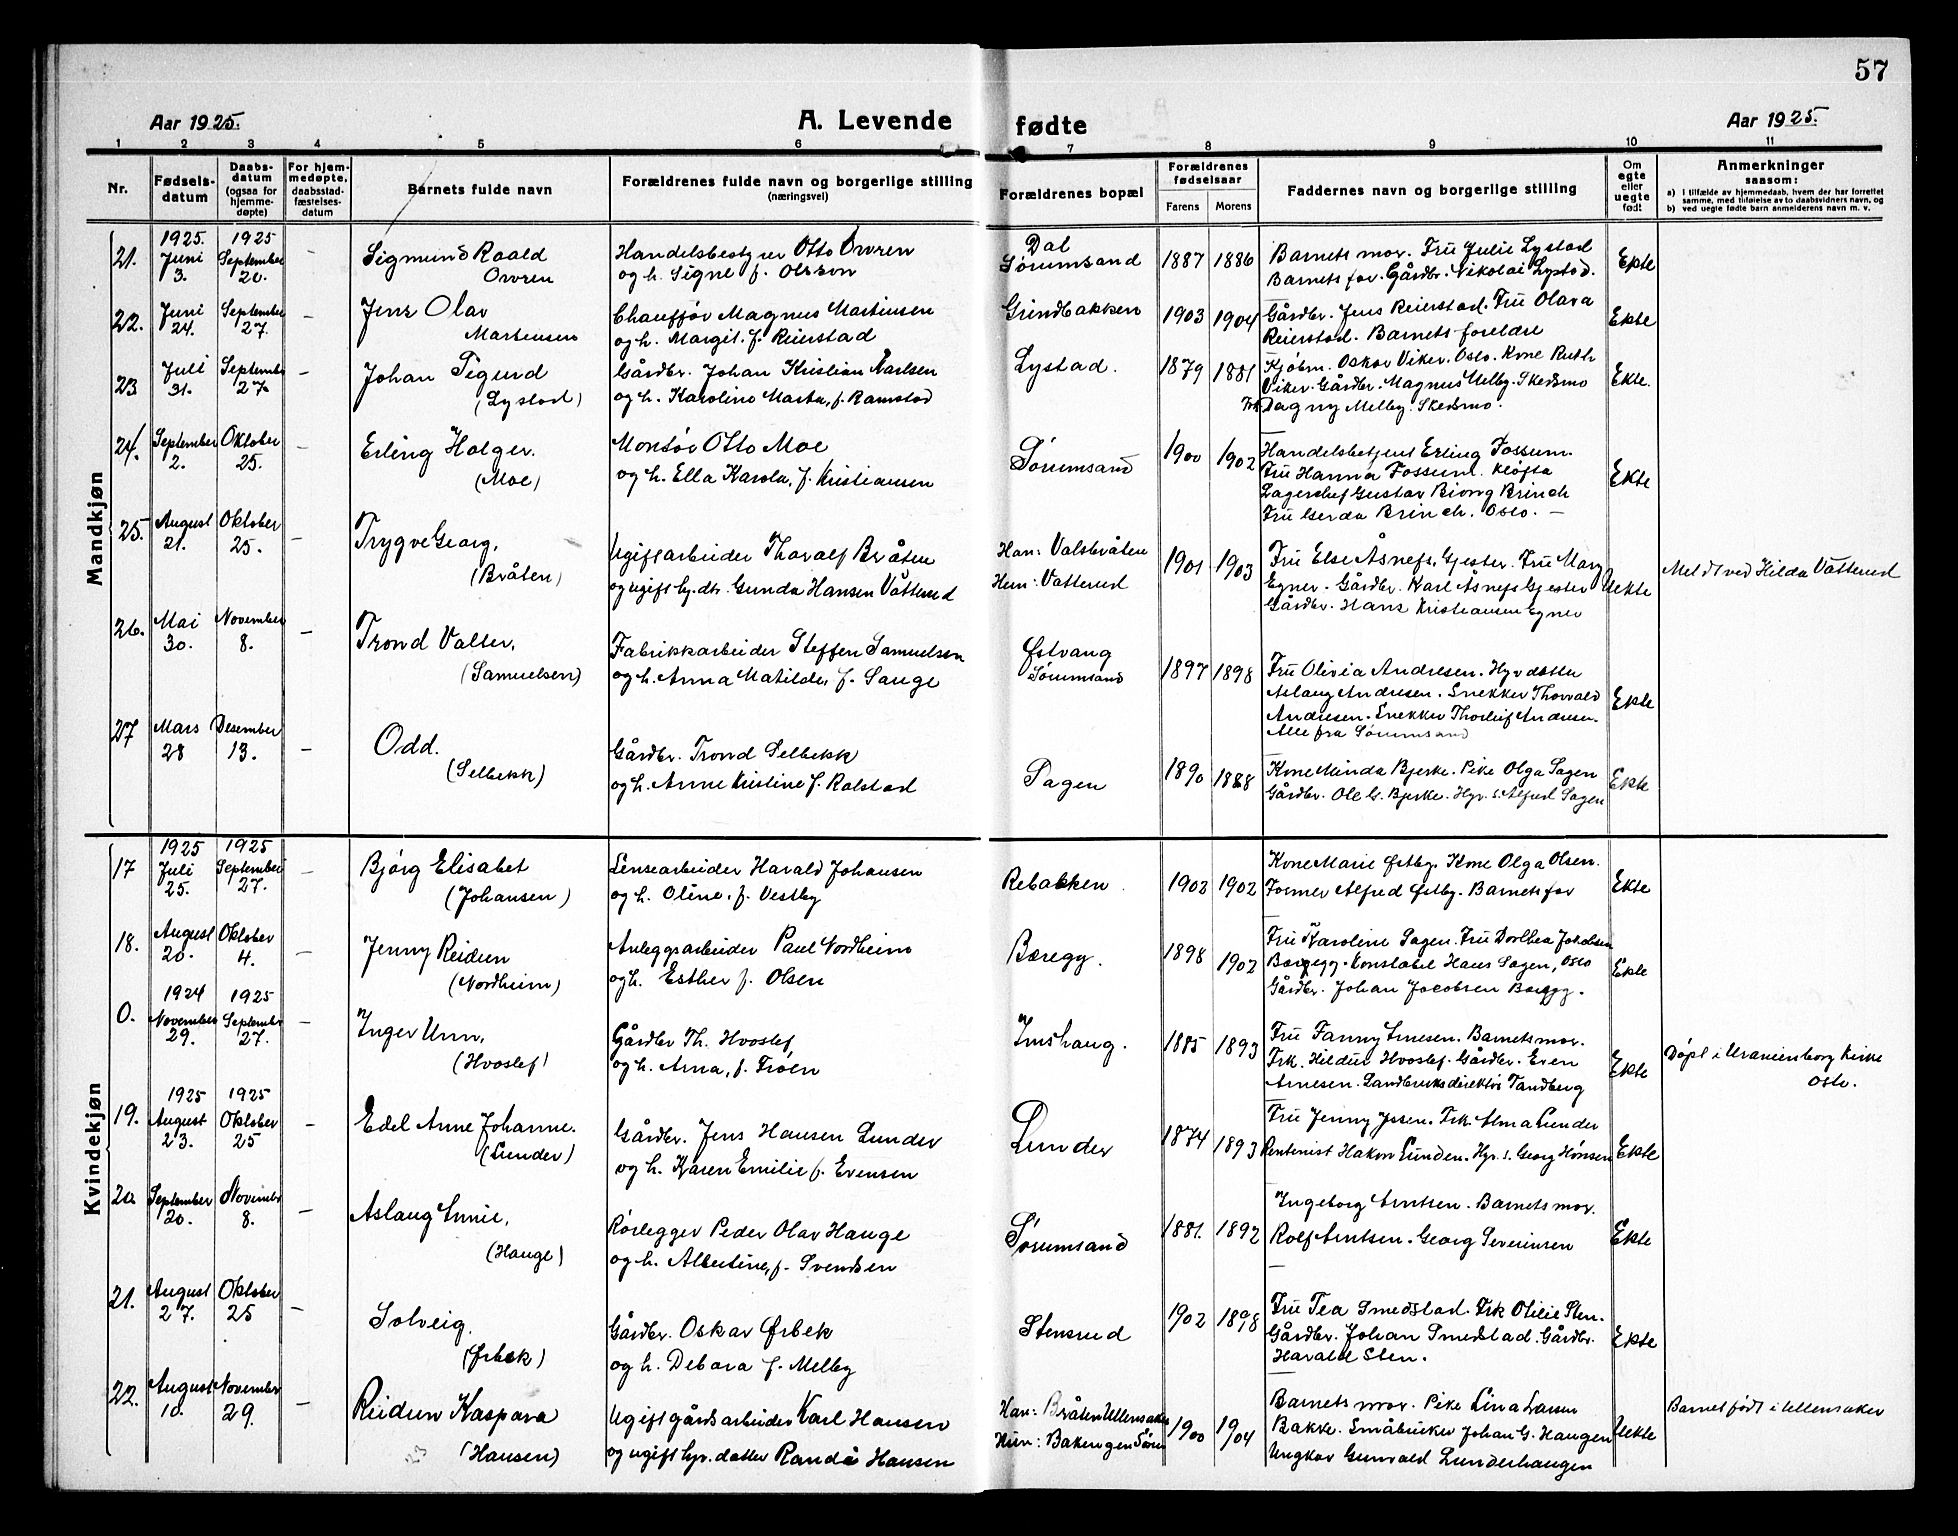 57
Aar 1925.
A. Levende
fødte
Aar 1925.
1 2 3 4 5 6 7 8 9 10 11
Nr.
Fødsels-
datum
Daabs-
datum
(ogsaa for
hjemme-
døpte)
For hjem-
medøpte,
daabsstad-
fæstelses-
datum
Barnets fulde navn
Forældrenes fulde navn og borgerlige stilling
(næringsvei)
Forældrenes bopæl
Forældrenes
fødselsaar
Farens Morens
Faddernes navn og borgerlige stilling
Om
egte
eller
uegte
født
Anmerkninger
saasom:
a) I tilfælde av hjemmedaab, hvem der har forrettet
samme, med tilføielse av to daabsvidners navn, og
b) ved uegte fødte barn anmelderens navn m. v.
Mandkjøn
21. 1925. Juni 3. 1925 September 20. – Sigmund Roald Ovren
Handelsbestyrer Otto Ovren
og h. Signe f. Olsson
Dal
Sørumsand
1887 1886
Barnets mor. Fru Julie Lystad
Barnets far. Gårdbr. Nikolai Lystad.
Ekte
22. Juni 24. September 27. – Jens Olav
Martensen
Chauffør Magnus Martinsen
og h. Margit, f. Reierstad
Grindbakken
1903 1904
Gårdbr. Jens Reierstad. Fru Olava
Reierstad. Barnets foreldre
Ekte
23 Juli 31. September 27 – Johan Sigurd
(Lystad)
Gårdbr. Johan Kristian Karlsen
og h. Karoline Marta, f. Ramstad
Lystad.
1879 1881
Kjøbm. Oskar Viker. Oslo. Kone Ruth
Viker. Gårdbr. Magnus Melby. Skedsmo
Frk Dagny Melby. Skedsmo.
Ekte.
24. September 2. Oktober 25. Erling Holger.
(Moe)
Montør Otto Moe
og h. Ella Karola, f. Kristiansen
Sørumsand
1900 1902
Handelsbetjent Erling Fossum.
Fru Hanna Fossum. Kløfta
Lagerchef Gustav Biong Brinch
Fru Gerda Brinch. Oslo. –
Ekte
25. August 21. Oktober 25. – Trygve Georg,
(Bråten)
Ugift arbeider Thoralf Bråten
og ugift hy. dtr. Gunda Hansen Våtterud
Han: Valsbråten
Hun: Vatterud
1901 1903
Fru Else Åsnefs. Gjester. Fru Mary
Egner. Gårdbr. Karl Åsnefs Gjester
Gårdbr. Hans Kristiansen Egner
Uekte
Meldt ved Hilda Våtterud
26. Mai 30. November 8. – Trond Valter,
(Samuelsen)
Fabrikkarbeider Steffen Samuelsen
og h. Anna Matilde, f. Sauge
Østvang
Sørumsand
1897 1898
Fru Olivia Andresen. Hyrdatter
Aslaug Andresen. Snekker Thorvald
Andresen. Snekker Thorleif Andresen.
Alle fra Sørumsand
Ekte
27 Mars 28 Desember 13. – Odd.
(Selbekk)
Gårdbr. Trond Selbekk
og h. Anne Kristine f. Rolstad
Sagen
1890 1888
Kone Minda Bjerke. Pike Olga Sagen
Gårdbr. Ole G. Bjerke. Hyr. s. Alfred Sagen
Ekte
Kvindekjøn
17 1925 Juli 25. 1925 September 27. – Bjørg Elisabet
(Johansen)
Lensearbeider Harald Johansen
og h. Oline, f. Vestby
Rebakken.
1902 1902
Kone Marie Østby. Kone Olga Olsen.
Former Alfred Østby. Barnets far
Ekte
18. August 20. Oktober 4. – Jenny Reidun
(Nordheim)
Anleggsarbeider Paul Nordheim
og h. Esther f. Olsen
Børegg.
1898 1902
Fru Karoline Sagen. Fru Dorthea Jakobsen
Konstabel Hans Sagen, Oslo
Gårdbr. Johan Jacobsen
Ekte
0. 1924 November 29. 1925 September 27. – Inger Unn,
(Hvoslef)
Gårdbr Th. Hvoslef
og h. Anna, f. Frøen
Imshaug.
1885 1893
Fru Fanny Arnesen. Barnets mor.
Frk. Hildur Hvoslef. Gårdbr. Even
Arnesen. Landbruksdirektør Tandberg
Ekte
Døpt i Uranienborg Kirke
Oslo.
19. 1925 August 23. 1925 Oktober 25 – Edel Anne Johanne.
(Lunder)
Gårdbr. Jens Hansen Lunder
og h. Karen Emilie f. Evensen
Lunder
1874 1893
Fru Jenny Jssen. Frk. Alma Lunder
Rentenist Hakon Lunden. Hyr. s. Georg Hønsen
Ekte
20 September 20. November 8. – Aslaug Annie,
(Hauge)
Rørlegger Peder Olav Hauge
og h. Albertine, f. Svendsen
Sørumsand
1881. 1892
Ingeborg Arntsen. Barnets mor.
Rolf Arntsen. Georg Severinsen
Ekte
21. August 27. Oktober 25 – Solveig.
(Ørbek)
Gårdbr. Oskar Ørbek
og h. Debora f. Melby
Stensrud
1902 1898
Fru Tea Smedstad. Frk Otilie Sten.
Gårdbr. Johan Smedstad. Gårdbr.
Harald Sten.
Ekte
22. August 10. November 29. – Reidun Kaspara
(Hansen)
Ugift gårdsarbeider Karl Hansen
og ugift hyr. datter Randi Hansen
Han: Bråten Ullensaker
Hun: Bakengen Sørum
1900 1904
Barnets mor. Pike Lina Larsen
Bakke. Småbruker Johan G. Haugen
Ungkar Gunvald Lunderhaugen
Uekte
Barnet født i Ullensaker